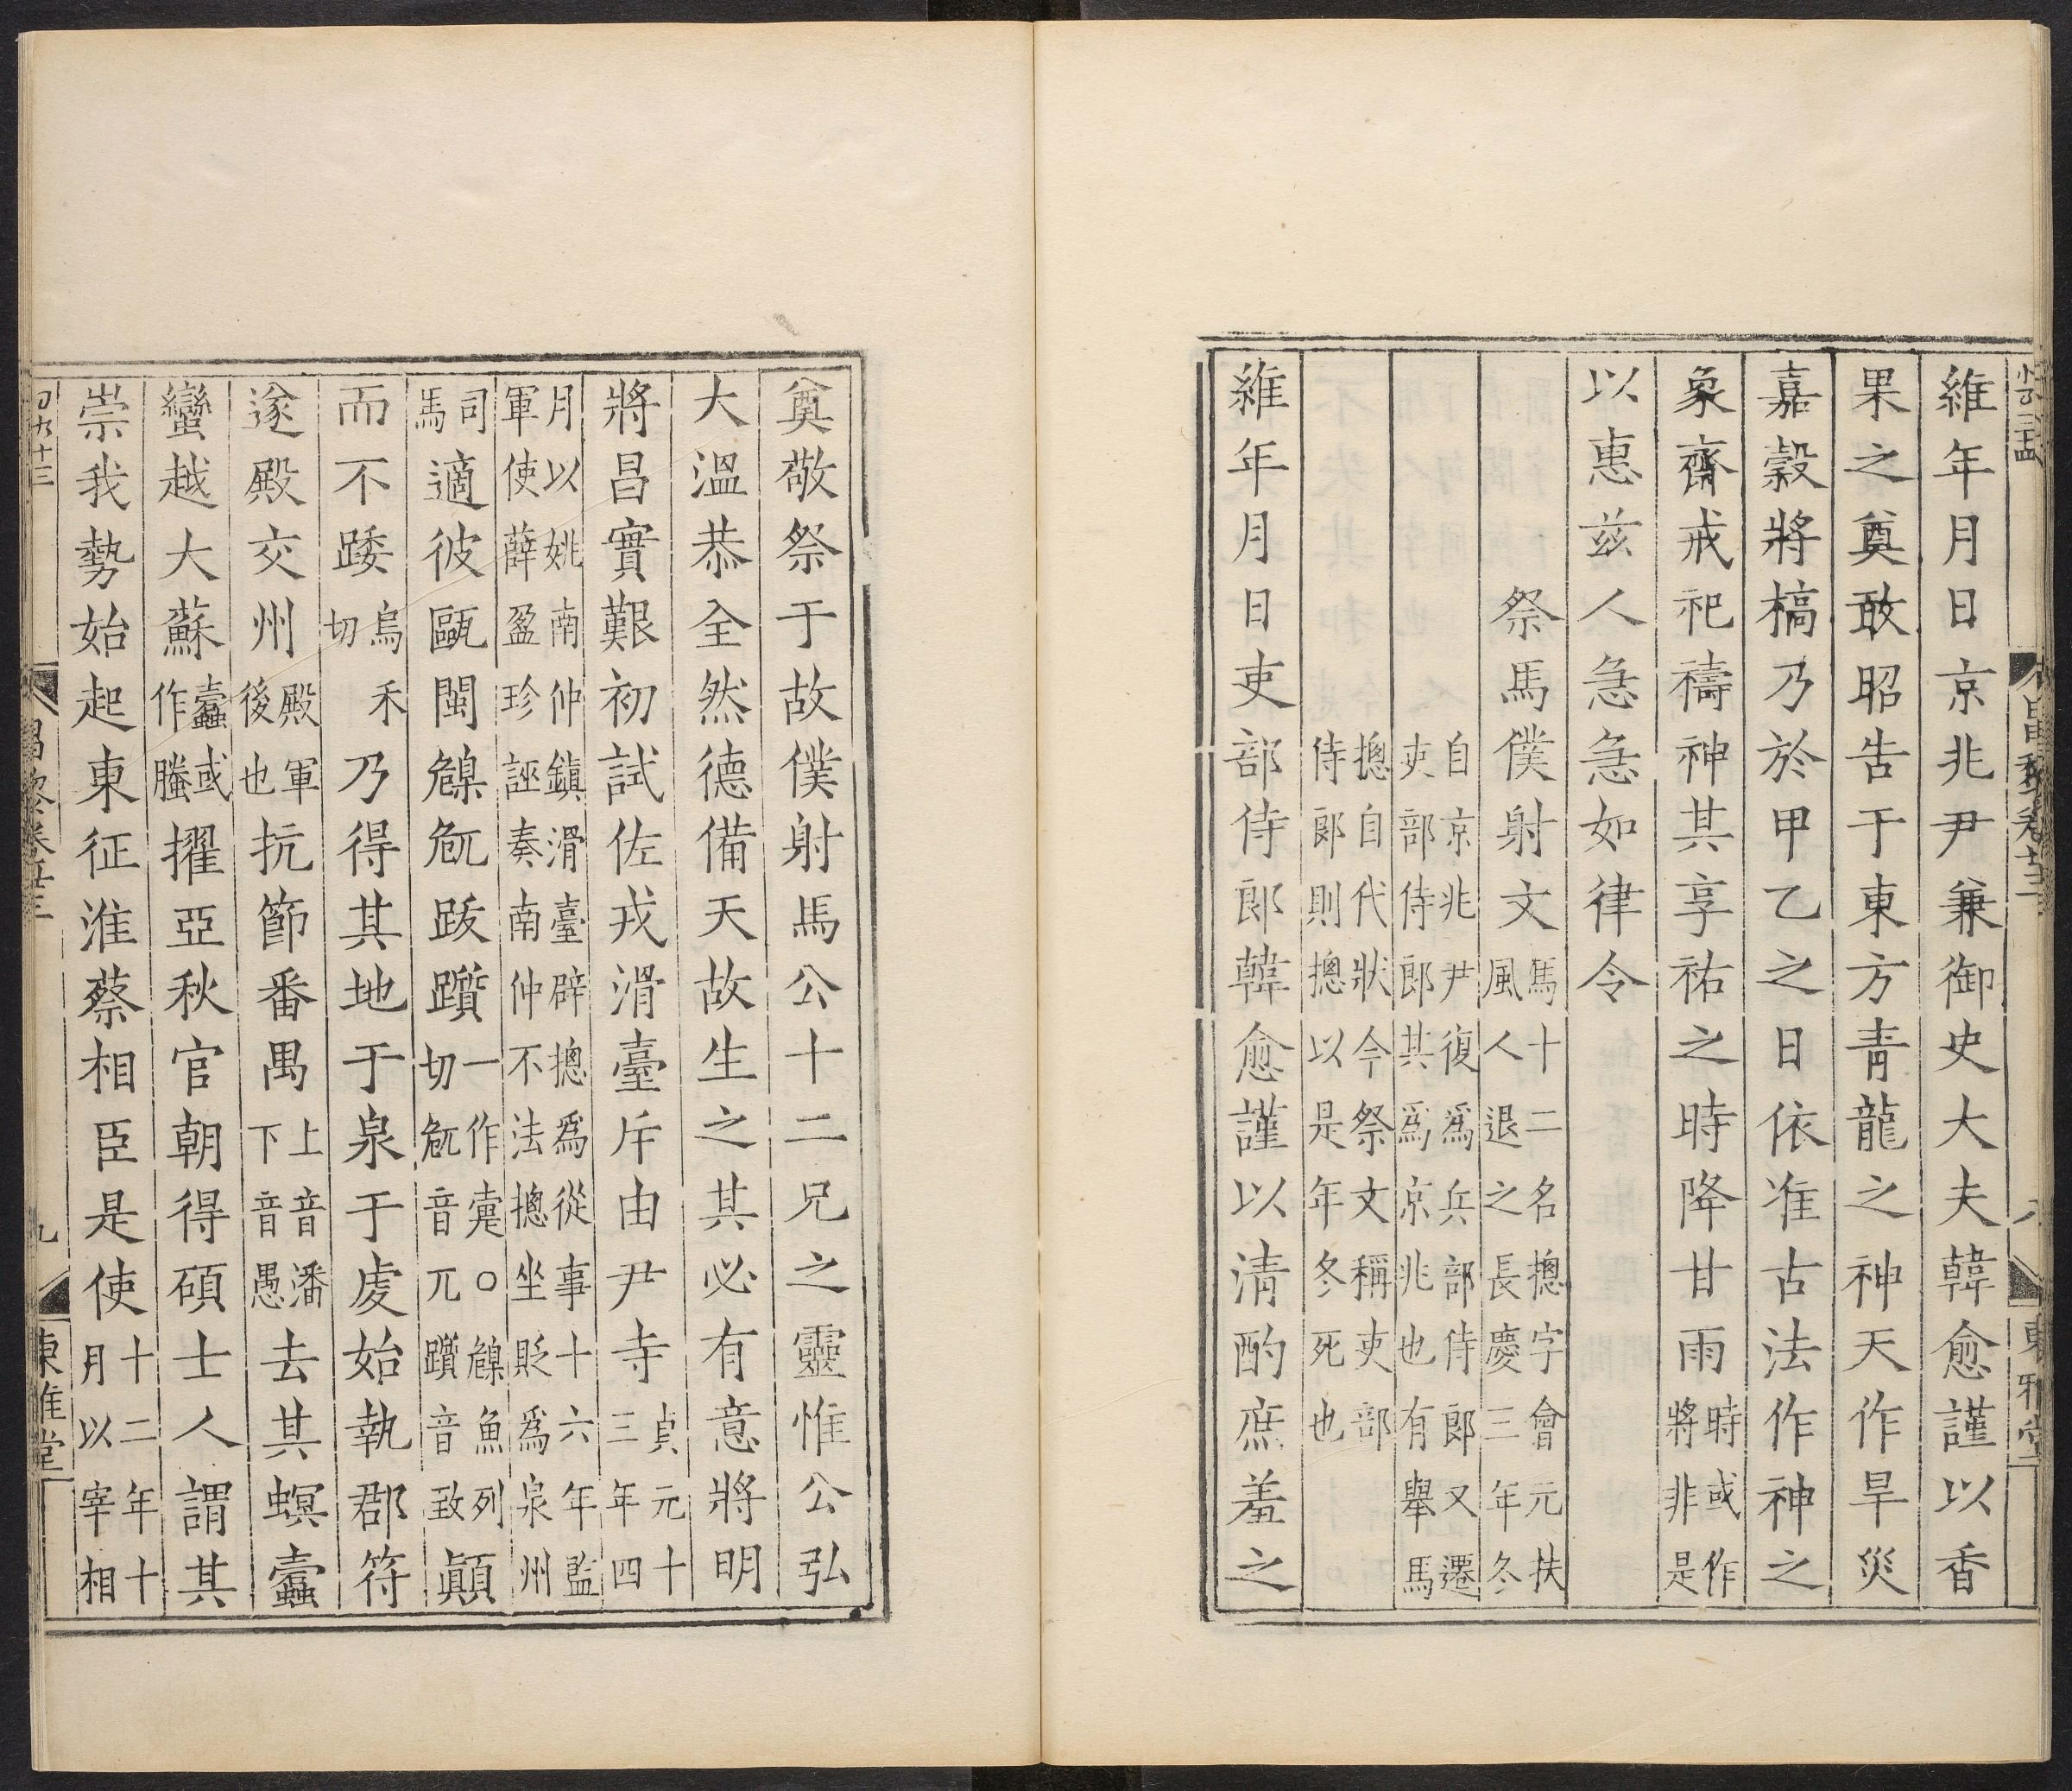 維年月日京兆尹兼御史大夫韓愈謹以香
果之奠敢昭告于東方青龍之神天作旱災
嘉穀將槁乃於甲乙之日依准古法作神之
象齋戒祀禱神其享祐之時降甘雨時或作將非是
以惠兹人急急如律令
祭馬僕射文馬十二名摠字會元扶風人退之長慶三年冬
自京兆尹復爲兵部侍郎又遷吏部侍郎其爲京兆也有舉馬
摠自代狀今祭文稱吏部侍郎則摠以是年冬死也
維年月日吏部侍郎韓愈謹以清酌庶羞之
奠敬祭于故僕射馬公十二兄之靈惟公弘
大溫恭全然德備天故生之其必有意將明
將昌實艱初試佐戎滑臺斥由尹寺貞元十三年四
月以姚南仲鎮滑臺辟摠爲從事十六年監軍使薛盈珍誣奏南仲不法摠坐貶爲泉州
司馬適彼甌閩䫫卼跋躓一作㚄切○䫫魚列切卼音兀躓音致顚
而不踒烏禾切乃得其地于泉于虔始執郡符
遂殿交州殿軍後也抗節番禺上音潘下音愚去其螟蠹
蠻越大蘇蠹或作螣擢亞秋官朝得碩士人謂其
崇我勢始起東征淮蔡相臣是使十二年十月以宰相
昌黎卷廿三
九
東雅堂